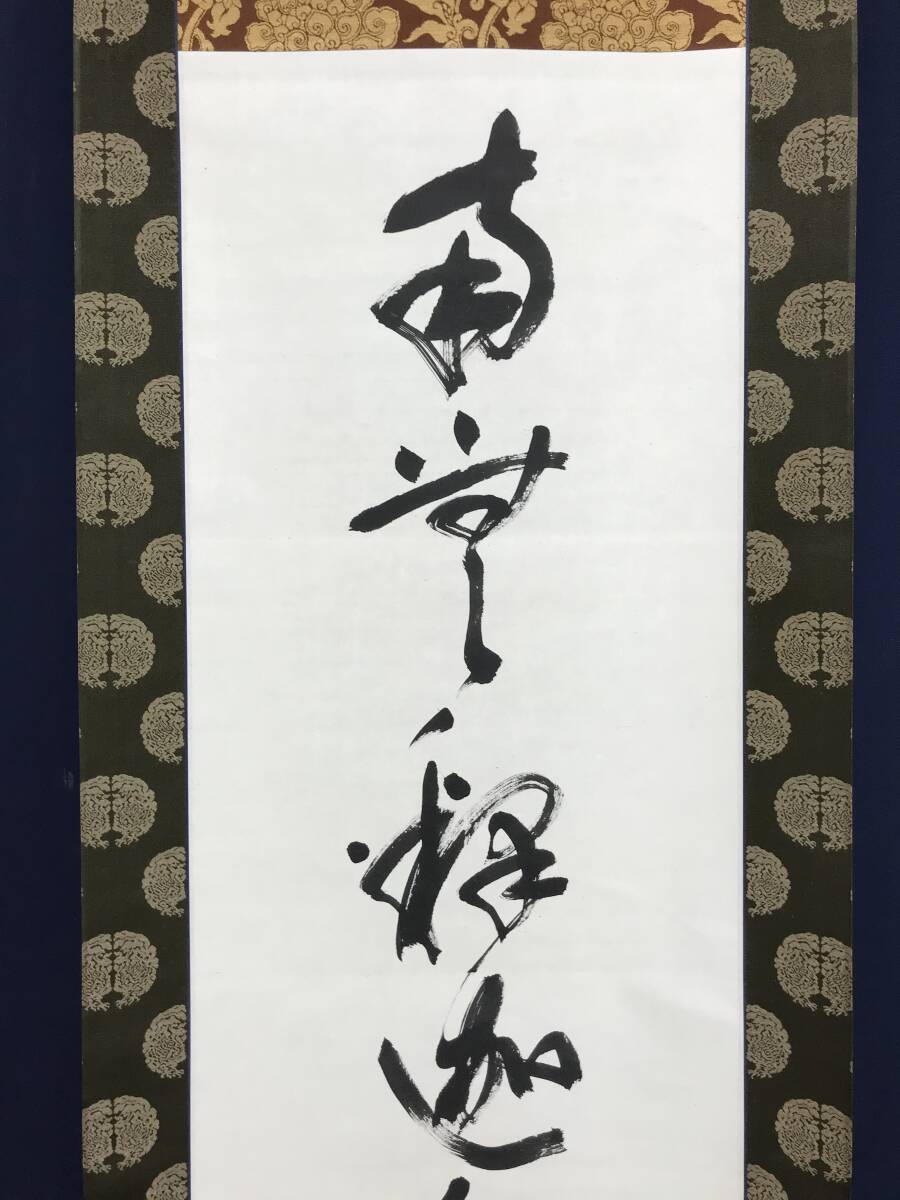 南無釋迦